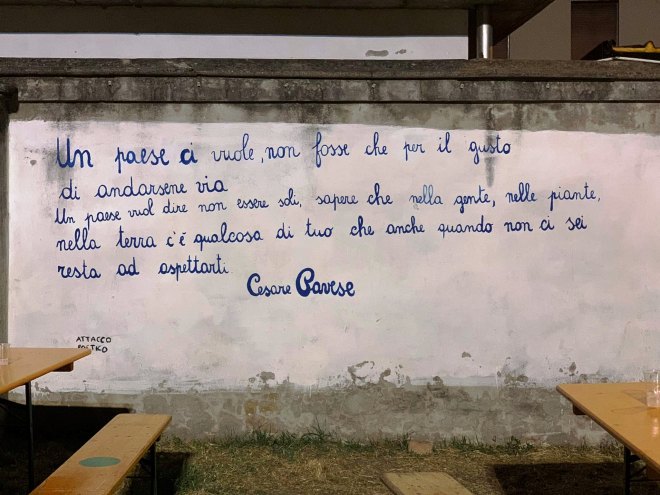 Un paese ci vuole, non fosse che per il gusto
di andarsene via
Un paese vuol dire non essere soli, sapere che nella gente, nelle piante,
nella terra c'è qualcosa di tuo che anche quando non ci sei
resta ad aspettarti
Cesare Pavese
ATTACCO
POETICO